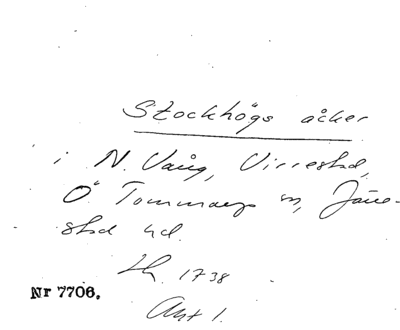 Stockhögs åker
i N. Vång, Virrestad,
Ö. Tommarp sn, Järre-
stad hd.
Lh. 1738
Nr 7706.
Akt 1.